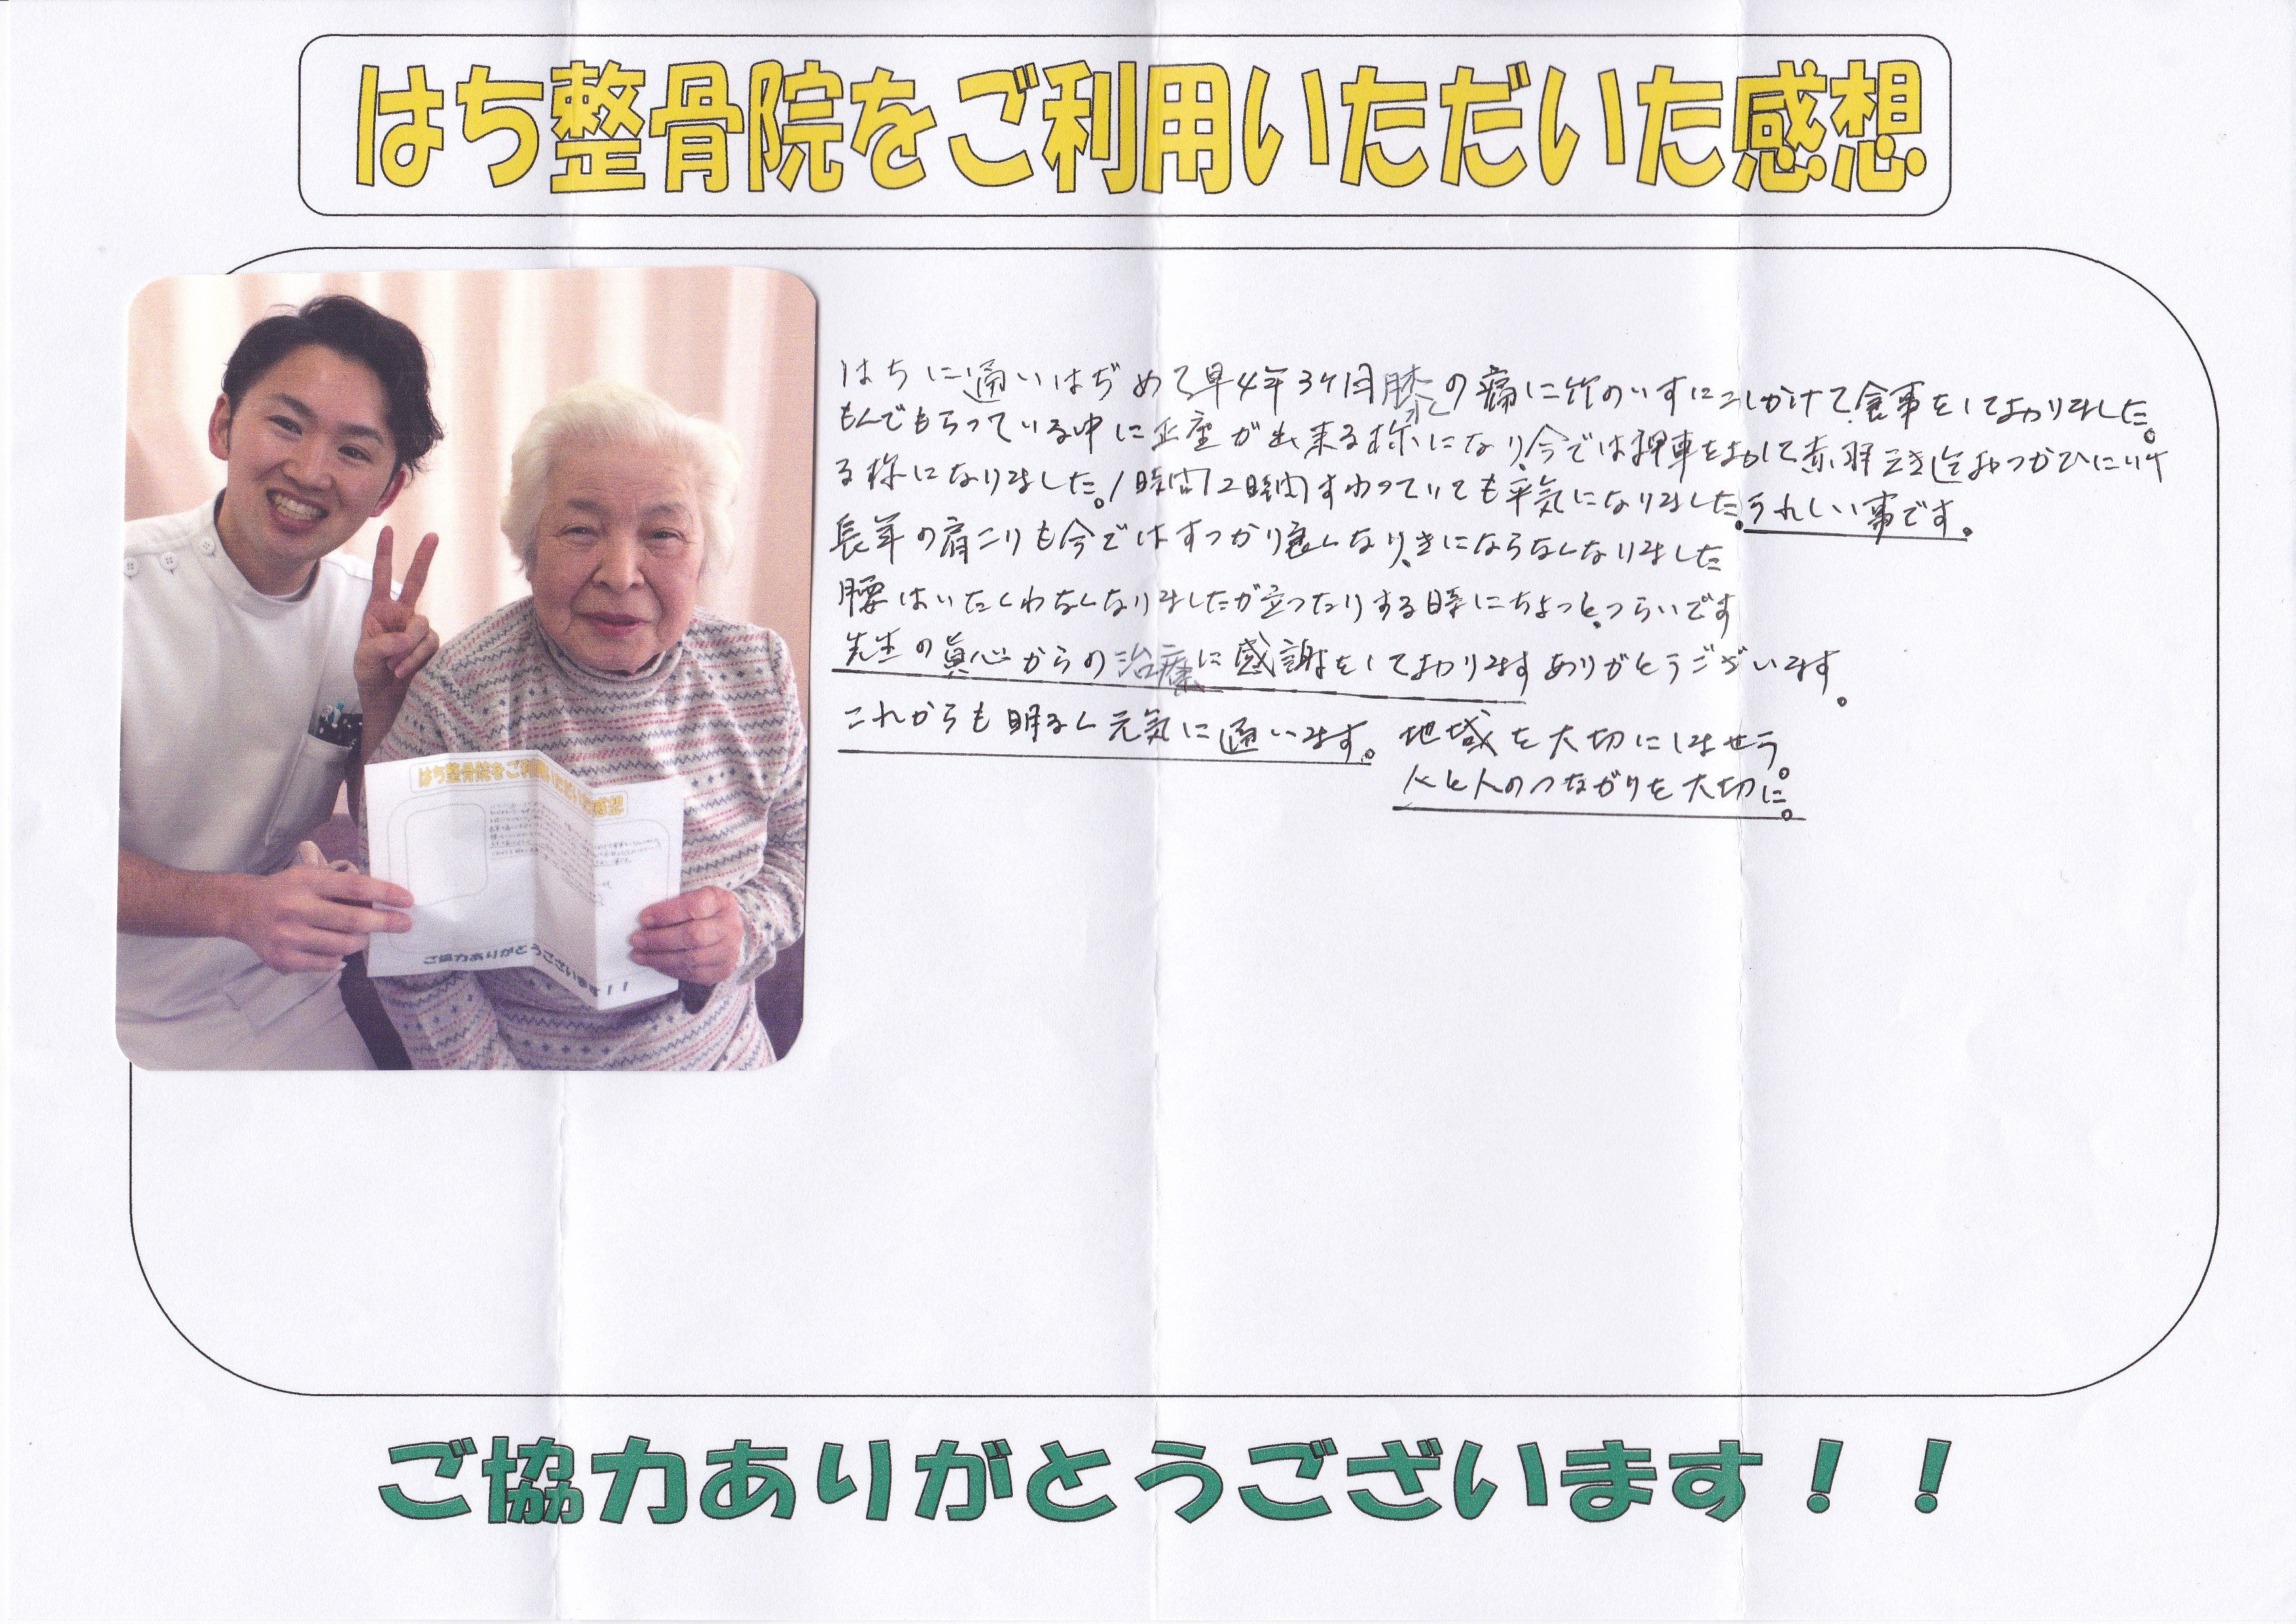 はち整骨院をご利用いただいた感想
はちに通いはぢめて早4年3ヶ月膝の痛に竹のいすにこしかけて食事をしておりました。
もんでもらっている中に正座が出来る様になり、今では押車をおして赤羽えき迄おつかひにいけ
る様になりました。1時間2時間すわっていても平気になりました。うれしい事です。
長年の肩こりも今ではすっかり良くなり、きにならなくなりました
腰はいたくわなくなりましたが立ったりする時にちょっとつらいです
先生の眞心からの治療に感謝をしておりますありがとうございます。
これからも明るく元気に通います。地域を大切にしませう。
人と人のつながりを大切に。
はち整骨院をご利用いただいた感想
ご協力ありがとうございます!!
ご協力ありがとうございます！！